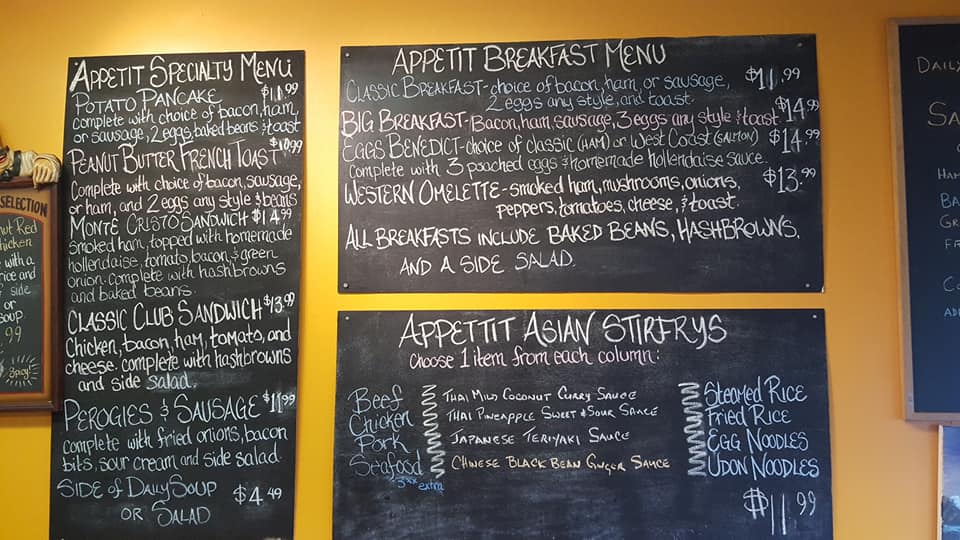 APPETIT SPECIALTY MENU
POTATO PANCAKE $11.99
complete with choice of bacon, ham,
or sausage, 2 eggs, baked beans & toast
PEANUT BUTTER FRENCH TOAST $10.99
Complete with choice of bacon, sausage,
or ham, and 2 eggs any style & beans
MONTE CRISTO SANDWICH $14.99
smoked ham, topped with homemade
hollendaise, tomato, bacon, & green
onion. complete with hashbrowns
and baked beans.
CLASSIC CLUB SANDWICH $13.99
Chicken, bacon, ham, tomato, and
cheese. complete with hashbrowns
and side salad.
PEROGIES & SAUSAGE $11.99
complete with fried onions, bacon
bits, sour cream and side salad.
SIDE OF DAILY SOUP
OR SALAD $4.49
APPETIT BREAKFAST MENU
CLASSIC BREAKFAST - choice of bacon, ham, or sausage, $11.99
2 eggs any style, and toast.
BIG BREAKFAST - Bacon, ham, sausage, 3 eggs any style & toast $14.99
EGGS BENEDICT - choice of CLASSIC (HAM) OR WEST COAST (SALMON) $14.99
Complete with 3 poached eggs & homemade hollendaise sauce.
WESTERN OMELETTE - smoked ham, mushrooms, onions, $13.99
peppers, tomatoes, cheese, & toast.
ALL BREAKFASTS INCLUDE BAKED BEANS, HASHBROWNS,
AND A SIDE SALAD.
APPETTIT ASIAN STIRFRYS
Choose 1 item from each column:
Beef
Chicken
Pork
Seafood
extra
THAI MILD COCONUT CURRY SAUCE
THAI PINEAPPLE SWEET & SOUR SAUCE
JAPANESE TERIYAKI SAUCE
CHINESE BLACK BEAN GINGER SAUCE
STEAMED RICE
FRIED RICE
EGG NOODLES
UDON NOODLES
$11.99
SELECTION
Red
with a
and
side
or
99
Spicy!
DAIL
SA
HAM
BA
GR
FR
CO
AD